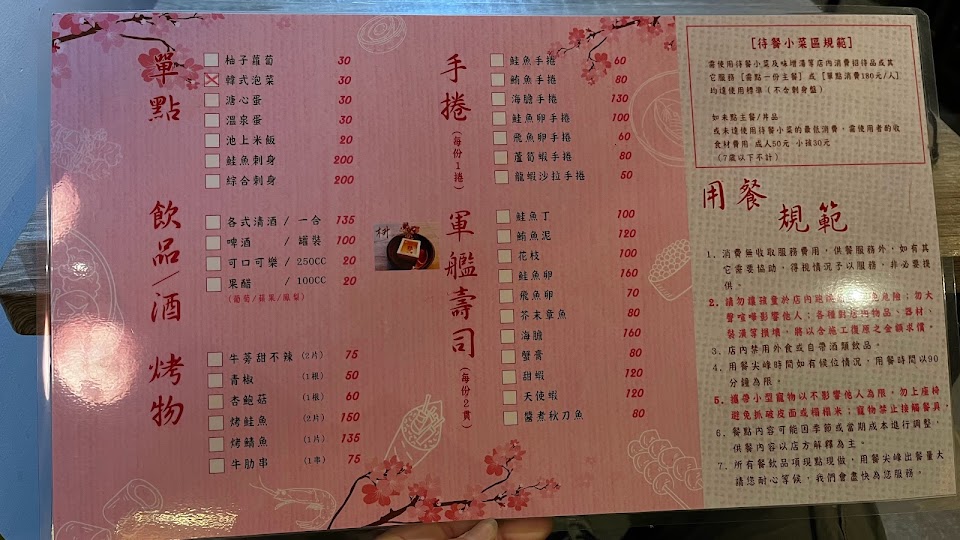 單點
柚子蘿蔔 30
韓式泡菜 30
溏心蛋 30
溫泉蛋 30
池上米飯 20
鮭魚刺身 200
綜合刺身 200
飲品/酒
各式清酒 / 一合 135
啤酒 / 罐裝 100
可口可樂 / 250CC 20
果醋 / 100CC 20
(葡萄/蘋果/鳳梨)
烤物
牛蒡甜不辣 (2片) 75
青椒 (1根) 50
杏鮑菇 (1根) 60
烤鮭魚 (2片) 150
烤鯖魚 (1片) 135
牛肋串 (1串) 75
手捲(每份1捲)
鮭魚手捲 60
鮪魚手捲 80
海膽手捲 130
鮭魚卵手捲 100
飛魚卵手捲 60
蘆筍蝦手捲 80
龍蝦沙拉手捲 50
軍艦壽司(每份2貫)
鮭魚丁 100
鮪魚泥 120
花枝 100
鮭魚卵 160
飛魚卵 70
芥末章魚 80
海膽 160
蟹膏 80
甜蝦 120
天使蝦 120
醬煮秋刀魚 80
[待餐小菜區規範]
需使用待餐小菜及味增湯等店內消費招待品或其
它服務 [需點一份主餐] 或 [單點消費180元/人]
均達使用標準 (不含刺身盤)
如未點主餐/丼品
或未達使用待餐小菜的最低消費, 需使用者酌收
食材費用 成人50元 小孩30元
(7歲以下不計)
用餐規範
1. 消費無收取服務費用, 供餐服務外, 如有其
它需要協助, 得視情況予以服務, 非必要提
供。
2. 請勿讓孩童於店內跑 危險; 勿大
聲喧嘩影響他人; 各種 物品、器材、
裝潢等損壞, 將以含施工復原之金額求償。
3. 店內禁用外食或自帶酒類飲品。
4. 用餐尖峰時間如有候位情況, 用餐時間以90
分鐘為限。
5. 攜帶小型寵物以不影響他人為限, 勿上座椅
避免抓破皮面或榻榻米; 寵物禁止接觸餐具。
6. 餐點內容可能因季節或當期成本進行調整,
供餐內容以店方解釋為主。
7. 所有餐飲品項現點現做, 用餐尖峰出餐量大
請您耐心等候, 我們會盡快為您服務。